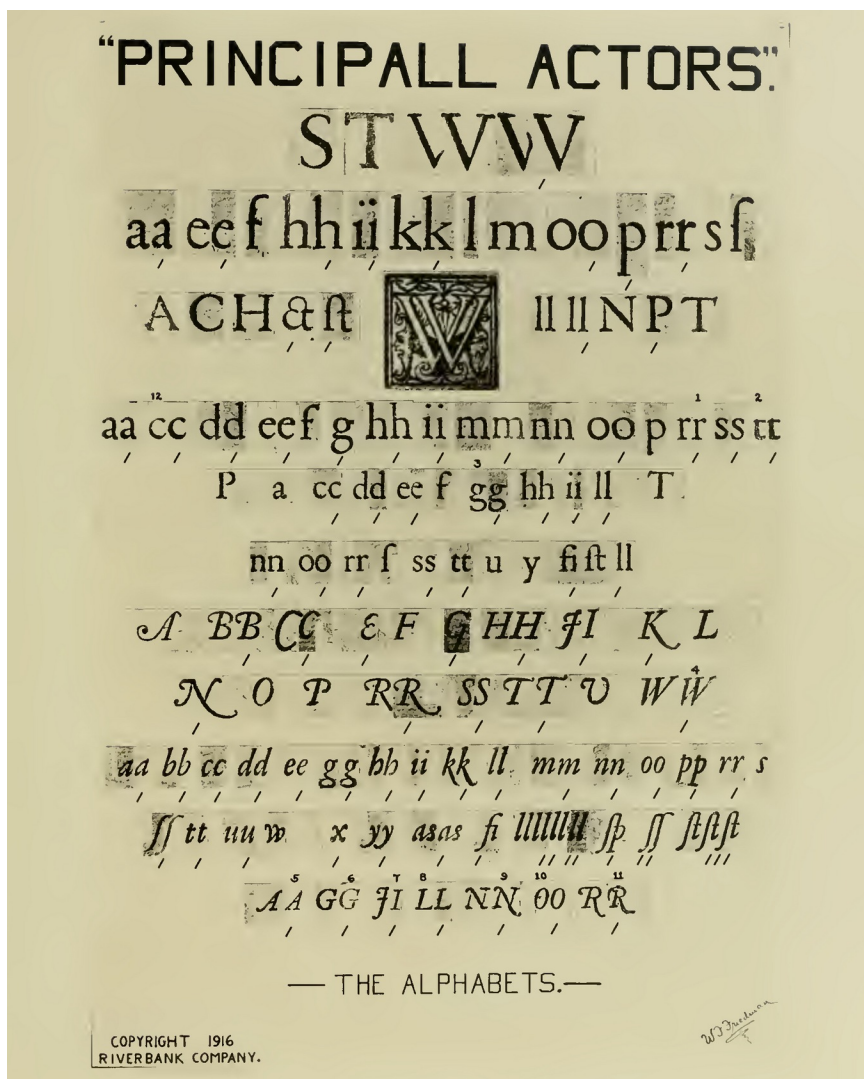 “PRINCIPALL ACTORS”.
S T W W
aa ee f hh ii kk l m oo p rr s ſ
A C H & ſt W ll ll N P T
12 1 2
aa cc dd ee f g hh ii mm nn oo p rr ss tt
3
P a cc dd ee f gg hh ii ll T
nn oo rr ſ ss tt u y fi ſt ll
A BB CC E F G HH JI K L
4
N O P RR SS TT U W W
aa bb cc dd ee gg hh ii kk ll mm nn oo pp rr s
ſſ tt uu w x yy asas fi llllllll ſp ſſ ſtſtſt
5 6 7 8 9 10 11
AA GG JI LL NN OO RR
— THE ALPHABETS. —
W F Friedman
COPYRIGHT 1916
RIVERBANK COMPANY.